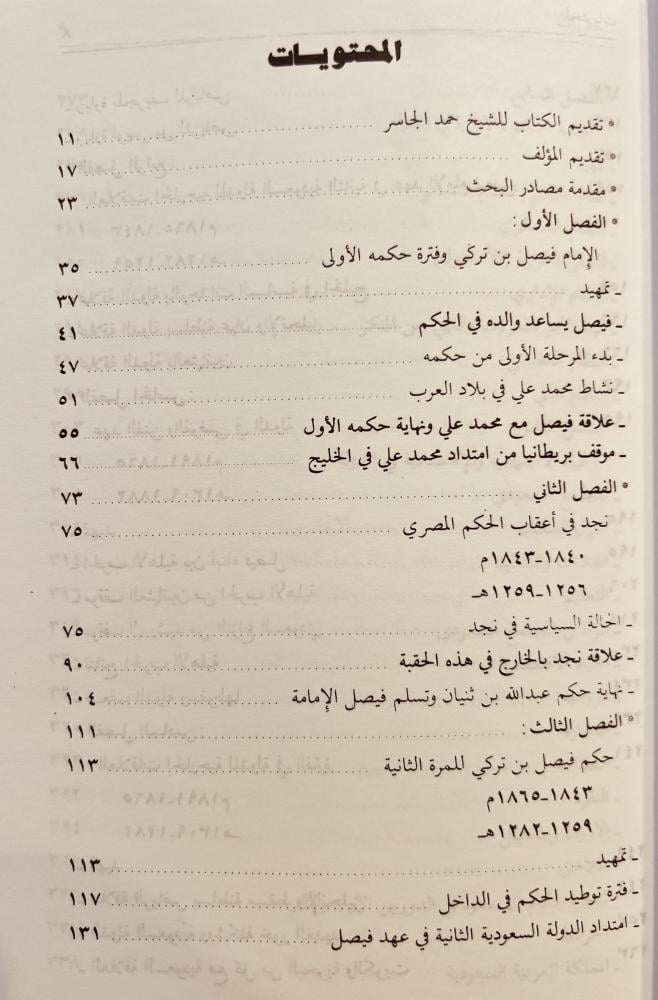 المحتويات
* تقديم الكتاب للشيخ حمد الجاسر ........ ١١
* تقديم المؤلف ........ ١٧
* مقدمة مصادر البحث ........ ٢٣
* الفصل الأول:
الإمام فيصل بن تركي وفترة حكمه الأولى ........ ٣٥
ـ تمهيد ........ ٣٧
ـ فيصل يساعد والده في الحكم ........ ٤١
ـ بدء المرحلة الأولى من حكمه ........ ٤٧
ـ نشاط محمد علي في بلاد العرب ........ ٥١
ـ علاقة فيصل مع محمد علي ونهاية حكمه الأول ........ ٥٥
ـ موقف بريطانيا من امتداد محمد علي في الخليج ........ ٦٦
* الفصل الثاني ........ ٧٣
نجد في أعقاب الحكم المصري ........ ٧٥
١٨٤٠ـ١٨٤٣م
١٢٥٦ـ١٢٥٩هـ
ـ الحالة السياسية في نجد ........ ٧٥
ـ علاقة نجد بالخارج في هذه الحقبة ........ ٩٠
ـ نهاية حكم عبدالله بن ثنيان وتسلم فيصل الإمامة ........ ١٠٤
* الفصل الثالث: ........ ١١١
حكم فيصل بن تركي للمرة الثانية ........ ١١٣
١٨٤٣ـ١٨٦٥م
١٢٥٩ـ١٢٨٢هـ
ـ تمهيد ........ ١١٣
ـ فترة توطيد الحكم في الداخل ........ ١١٧
ـ امتداد الدولة السعودية الثانية في عهد فيصل ........ ١٣١